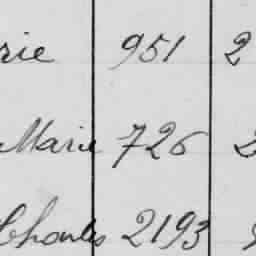 rie 951 2
Marie 726 2
Charles 2193